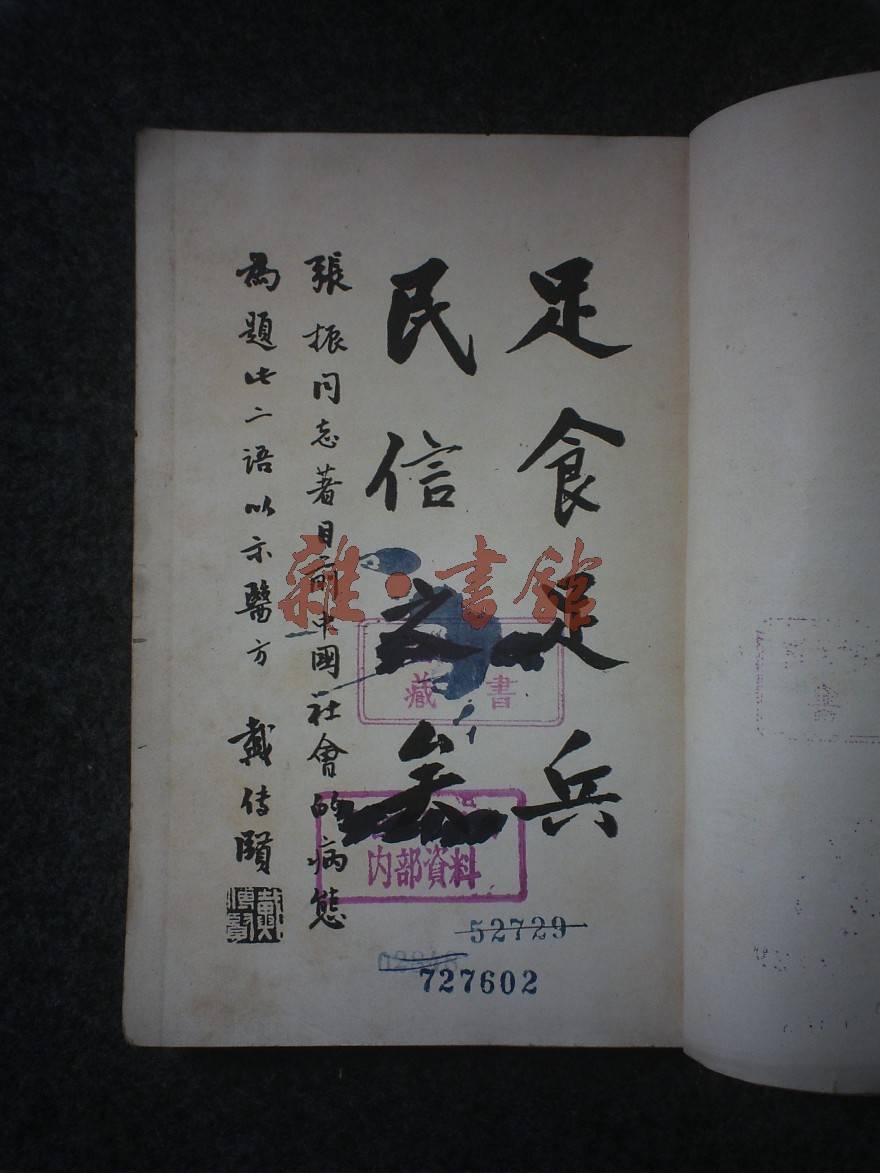 足食足兵
民信之矣
張振同志著目前中國社會的病態
為題此二語以示醫方 戴傳賢
戴傳賢
雜·書館
藏書
内部資料
52729
727602